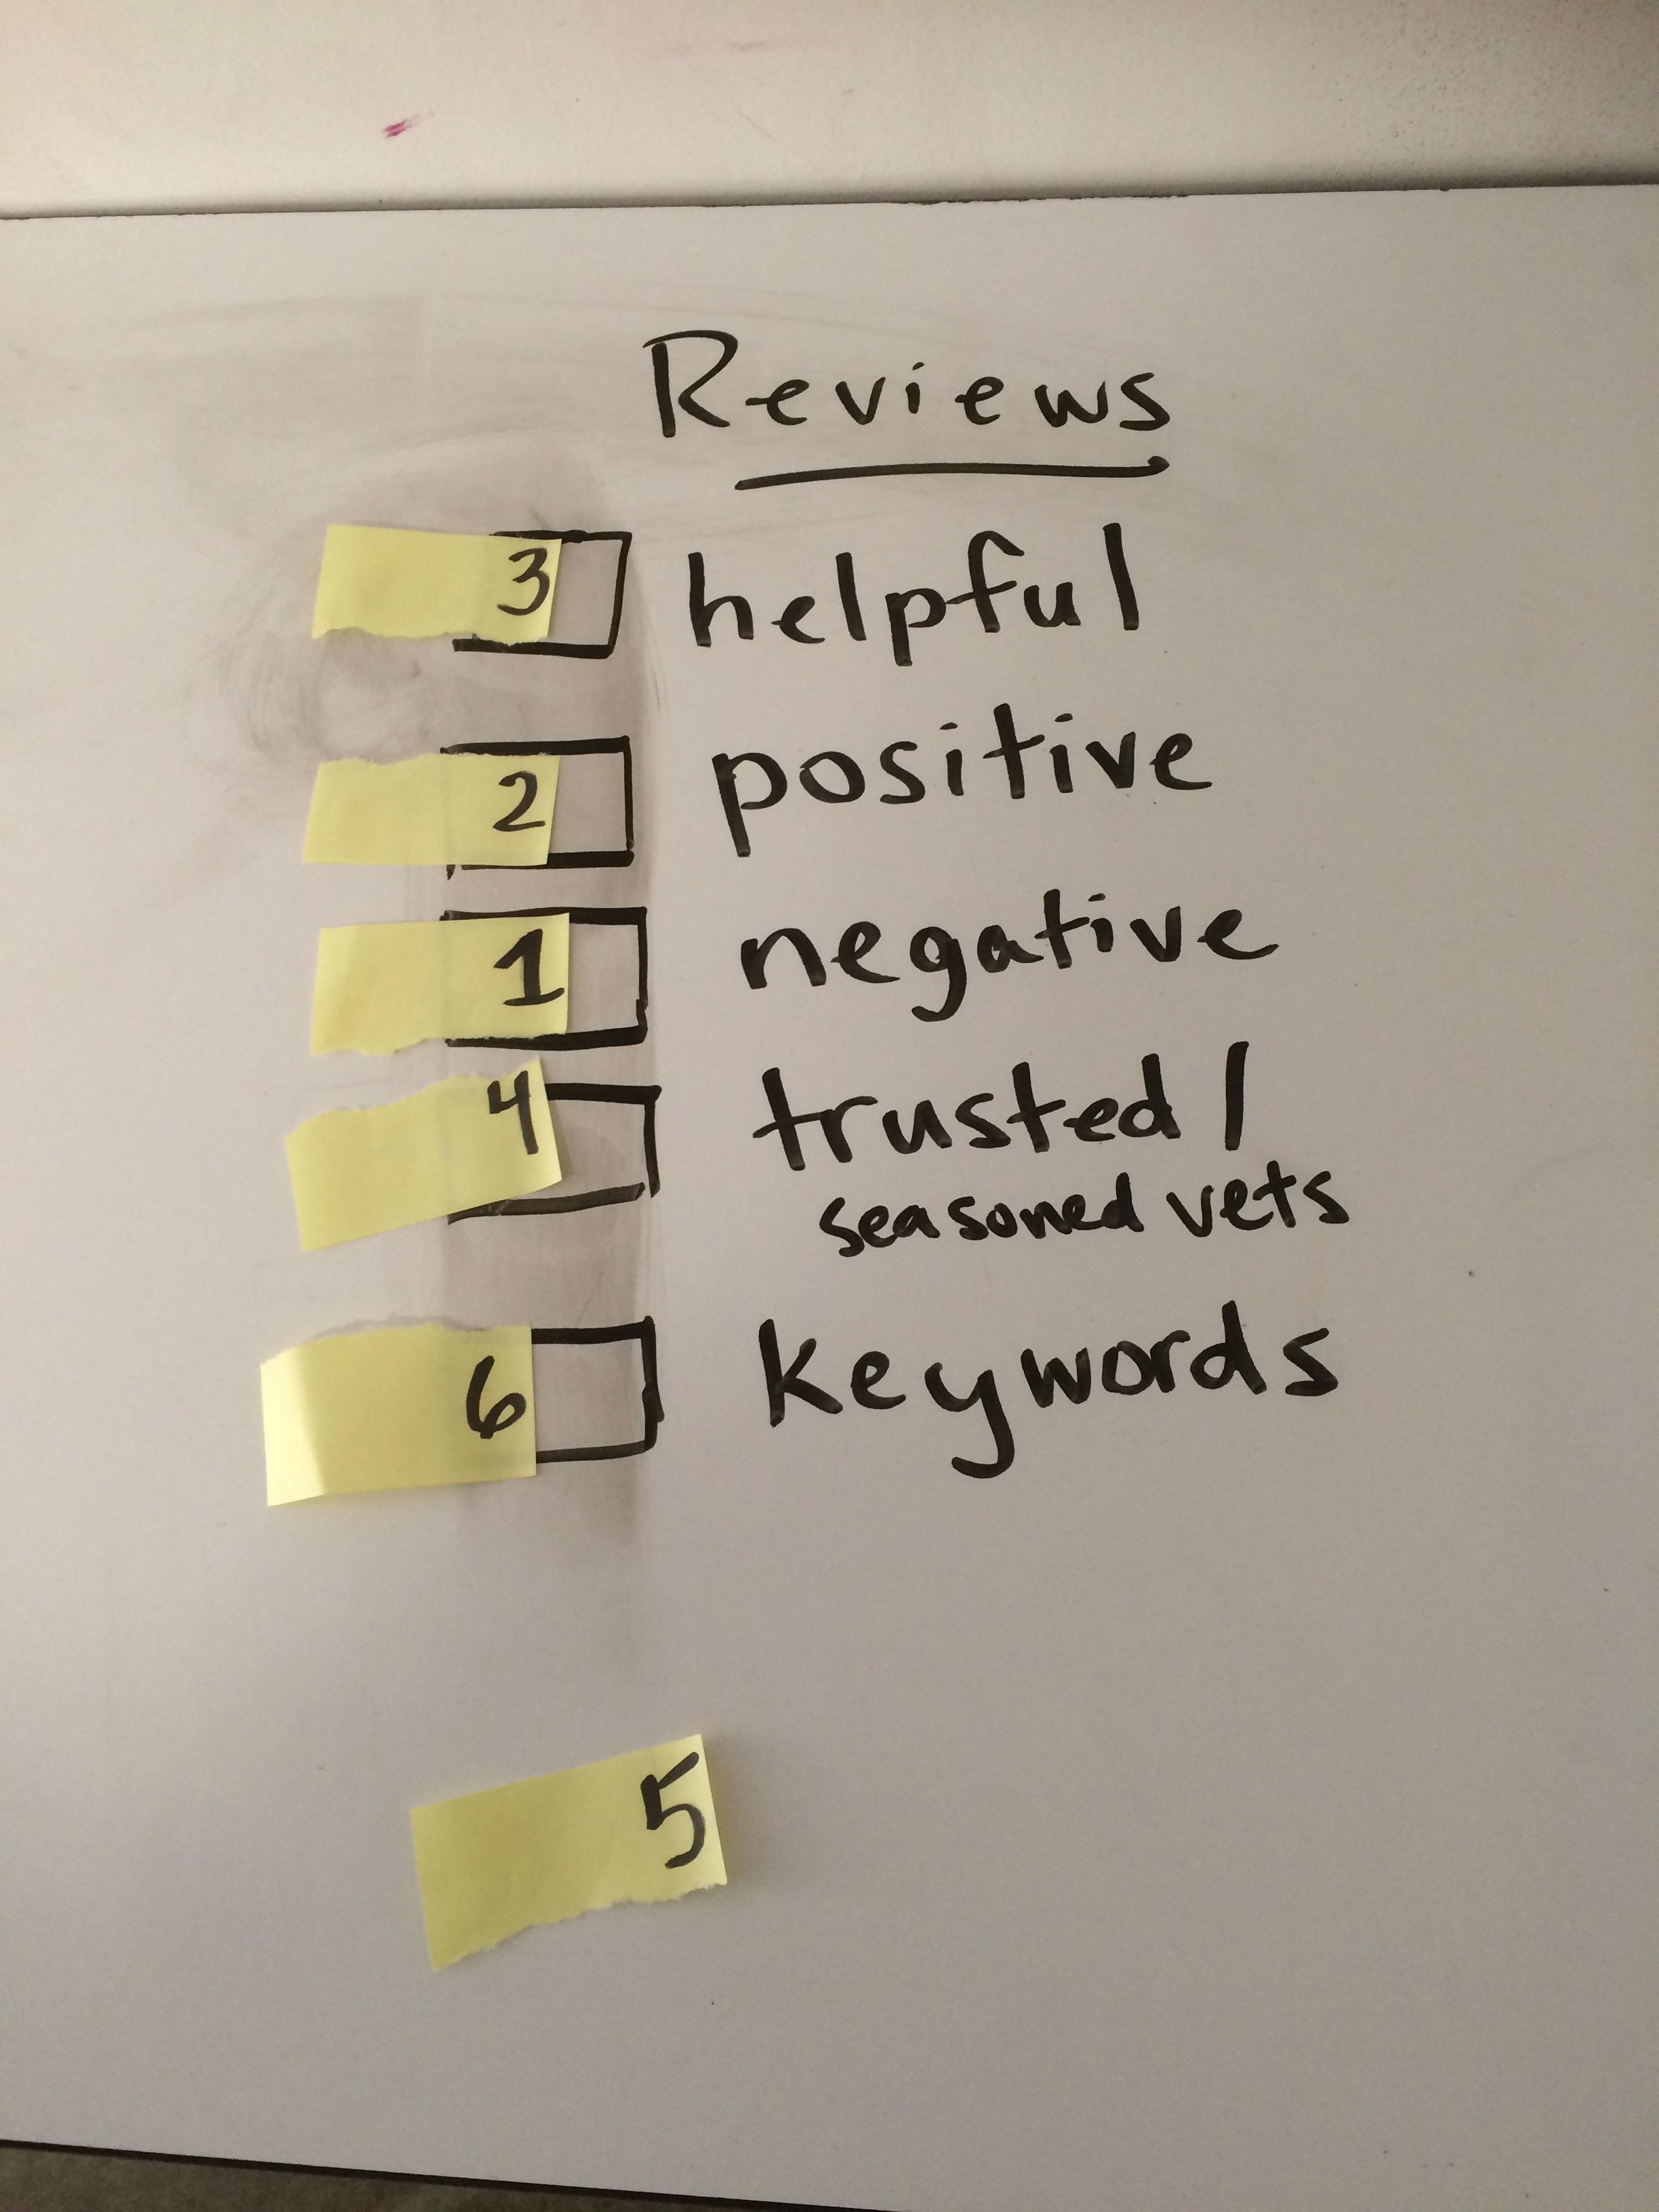 Reviews
3 helpful
2 positive
1 negative
4 trusted/
seasoned vets
6 keywords
5